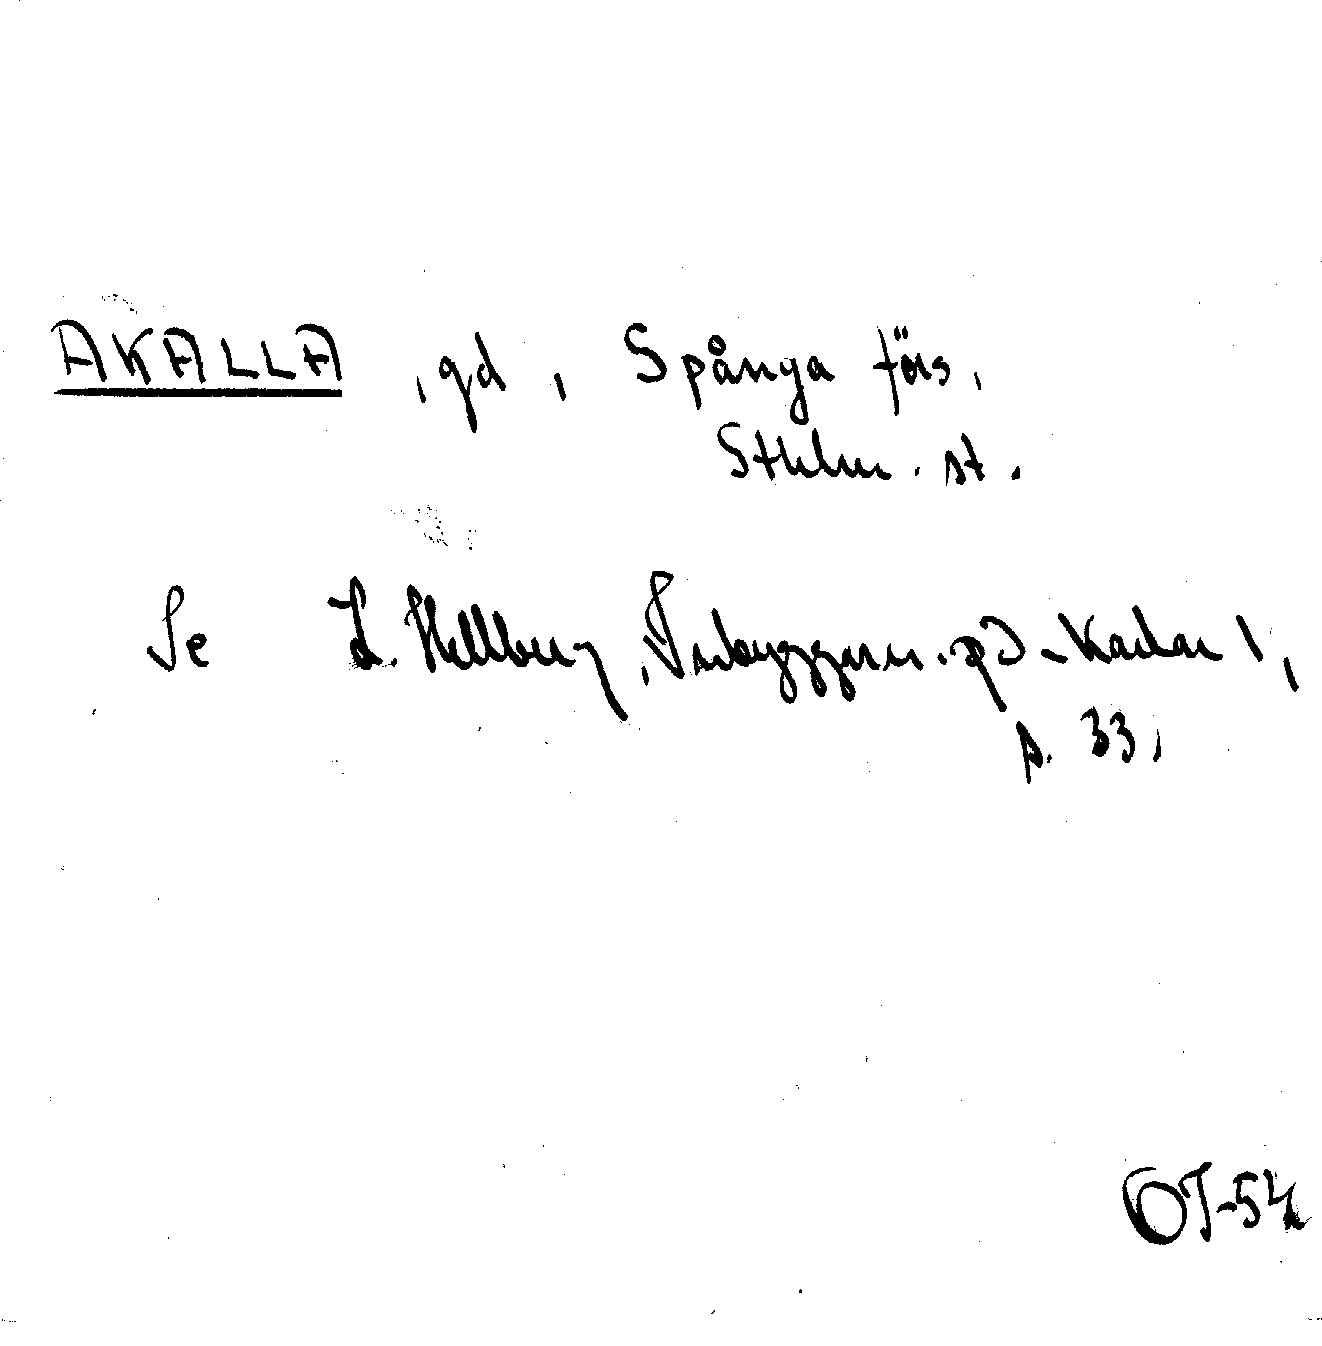 AKALLA, gd, Spånga förs,
Sthlm. st.
Se L. Hellberg, Inbyggarn. på -karlar 1,
s. 33,
OJ-54